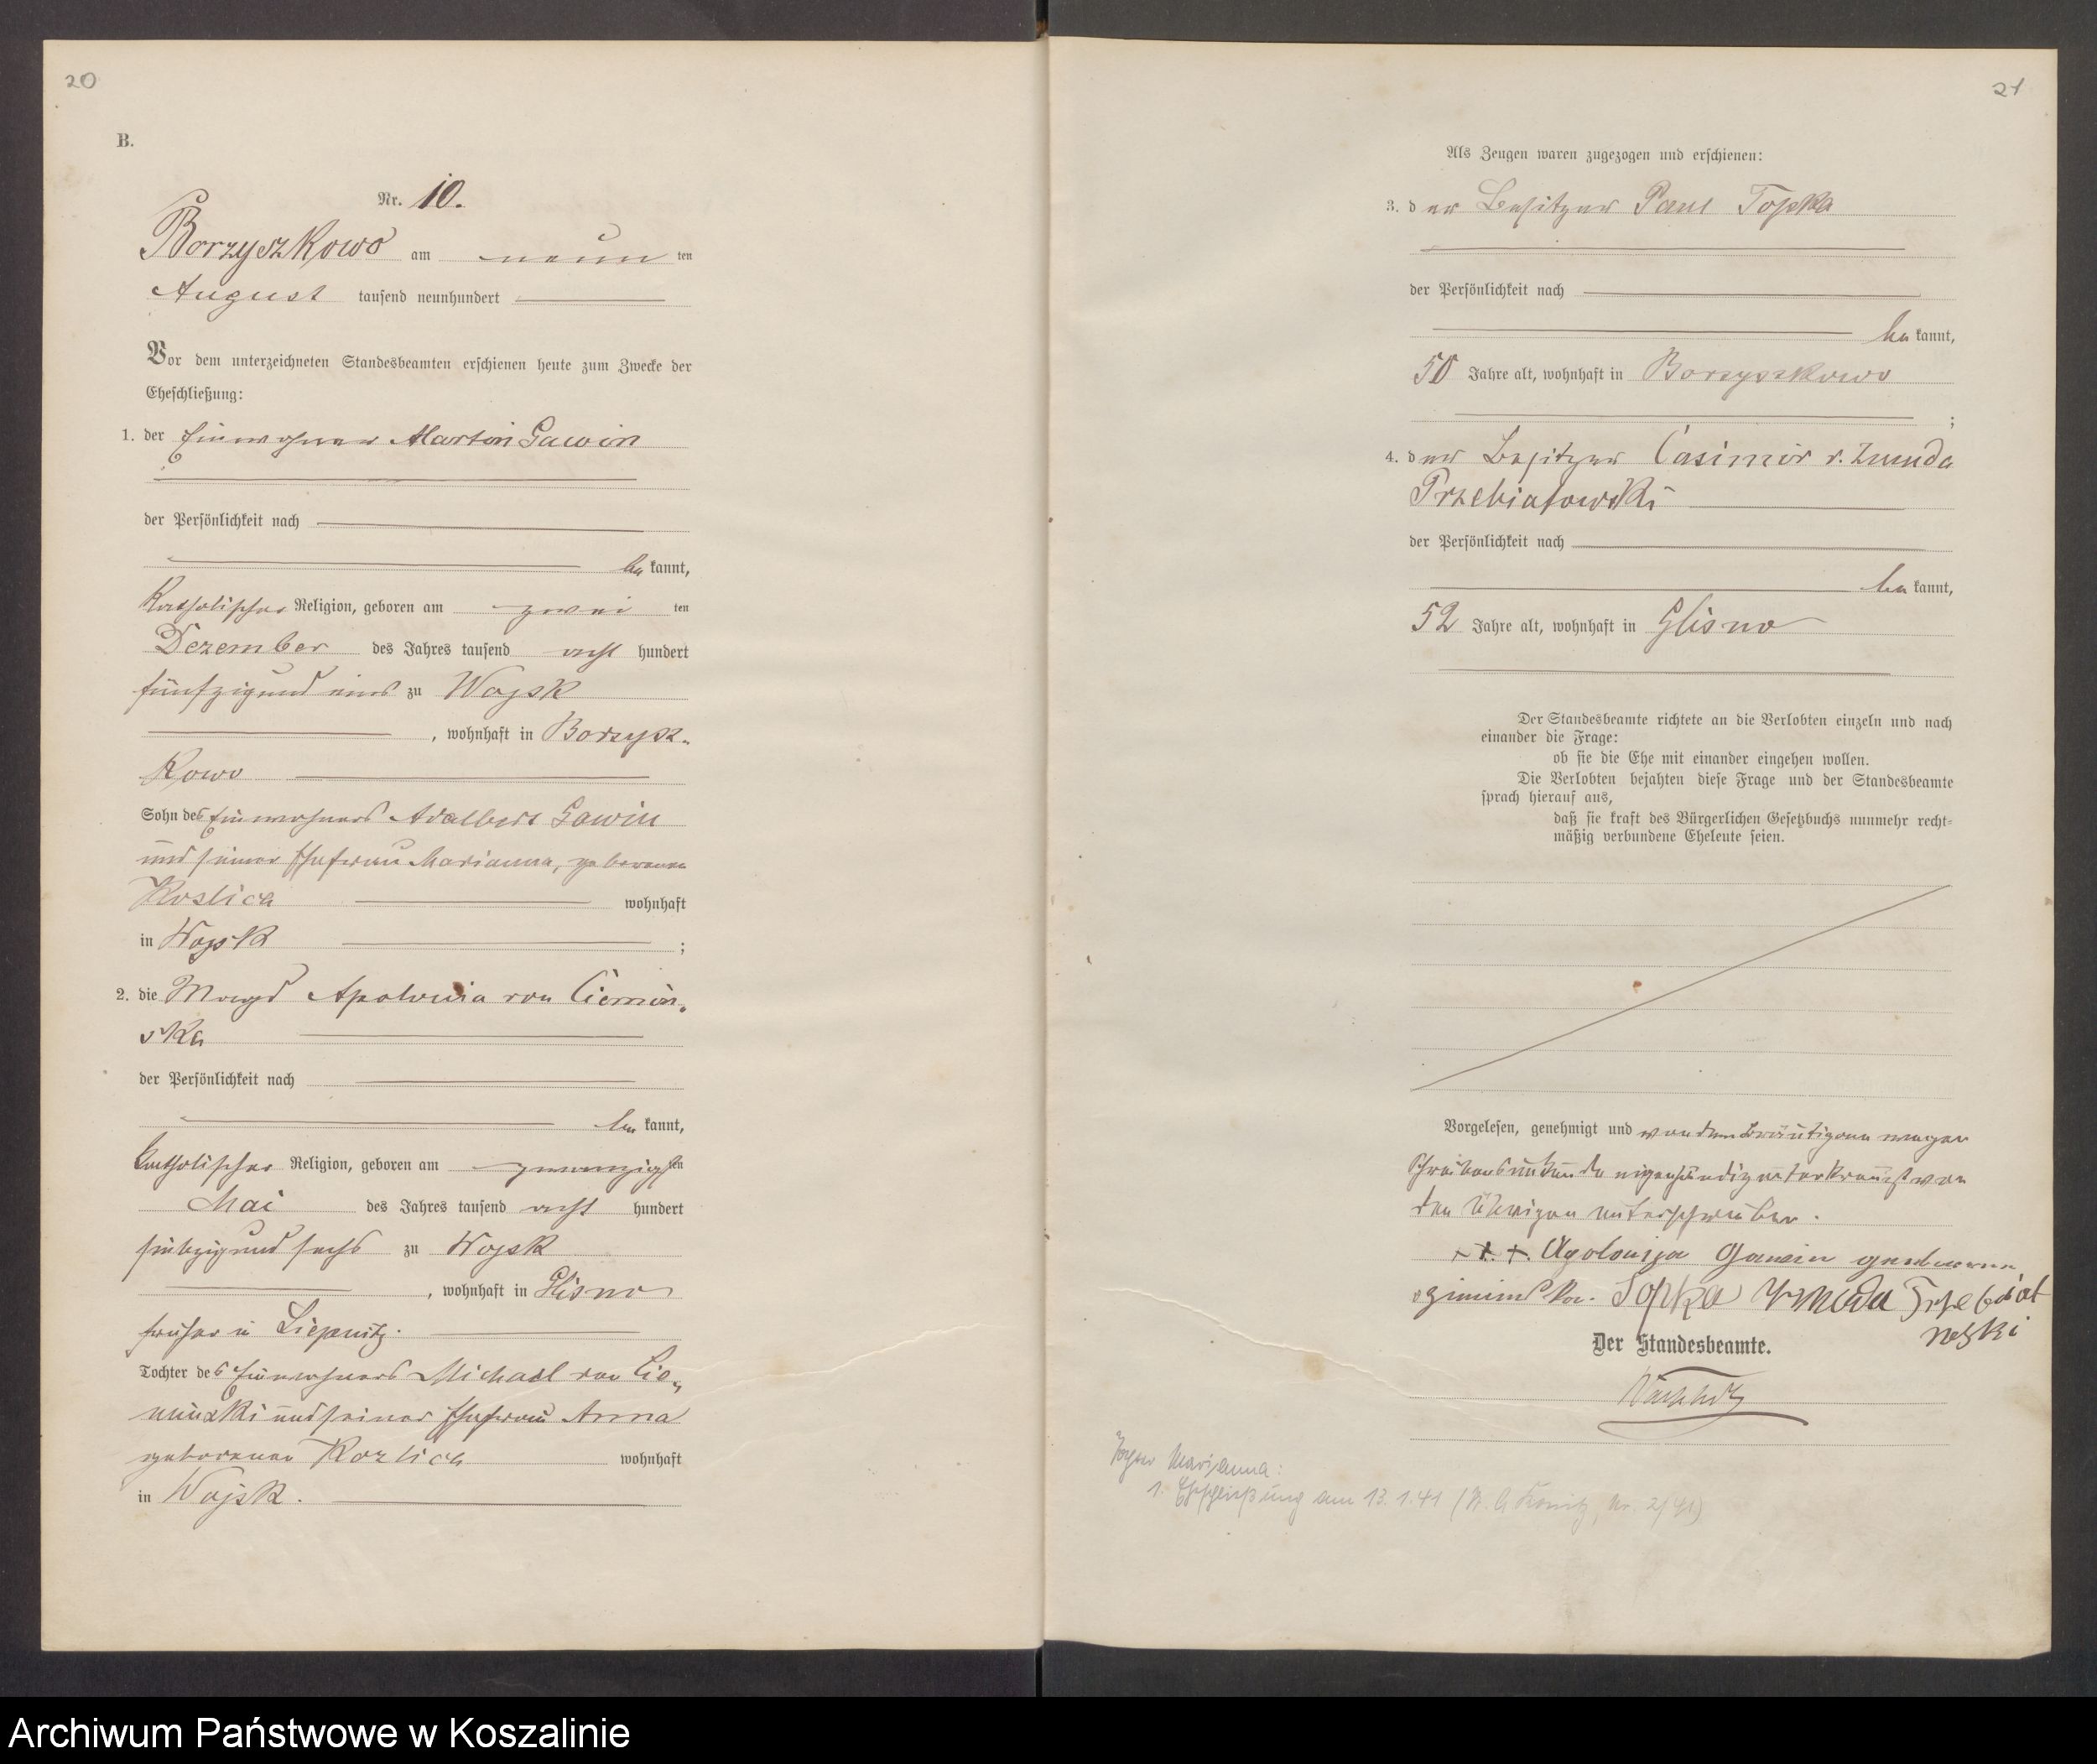 20
B.
Nr. 10.
Borzyszkowo am neun ten
August tausend neunhundert
Vor dem unterzeichneten Standesbeamten erschienen heute zum Zwecke der
Eheschließung:
1. der Einwohner Martin Gawin
der Persönlichkeit nach
be kannt,
Katholischer Religion, geboren am zwei ten
Dezember des Jahres tausend acht hundert
fünfzigund eins zu Wojsk
, wohnhaft in Borzysz-
kowo
Sohn des Einwohners Adalbert Gawin
und seiner Ehefrau Marianna, geborenen
Koslica wohnhaft
in Wojsk ;
2. die Magd Apolonia von Ciemin-
ska
der Persönlichkeit nach
be kannt,
katholischer Religion, geboren am zwanzigsten
Mai des Jahres tausend acht hundert
siebzigund sechs zu Wojsk
, wohnhaft in Glisno
früher in Liepnitz.
Tochter des Einwohners Michael von Cie-
minski und seiner Ehefrau Anna
geborenen Kozlica wohnhaft
in Wojsk.
21
Als Zeugen waren zugezogen und erschienen:
3. der Besitzer Paul Topka
der Persönlichkeit nach
be kannt,
50 Jahre alt, wohnhaft in Borzyszkowo
;
4. der Besitzer Casimir v. Zmuda
Przebiatowski
der Persönlichkeit nach
be kannt,
52 Jahre alt, wohnhaft in Glisno
Der Standesbeamte richtete an die Verlobten einzeln und nach
einander die Frage:
ob sie die Ehe mit einander eingehen wollen.
Die Verlobten bejahten diese Frage und der Standesbeamte
sprach hierauf aus,
daß sie kraft des Bürgerlichen Gesetzbuchs nunmehr recht-
mäßig verbundene Eheleute seien.
Vorgelesen, genehmigt und von dem Bräutigam wegen
Schreibensunkunde eigenhändig unterkreuzt von
den Übrigen unterschrieben.
+ + +. Apolonija Gawin geborene
Topka
Der Standesbeamte.
Tochter Marianna:
1. Eheschließung am 13.1.41 (St. A. Konitz, Nr. 2/41)
Archiwum Państwowe w Koszalinie